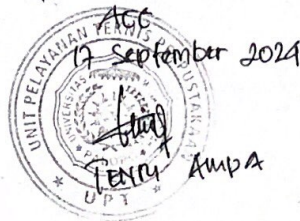 ACC
17 September 2024
UNIT PELAYANAN TEKNIS PERPUSTAKAAN
UNIVERSITAS
UPT
TENRI AMPA